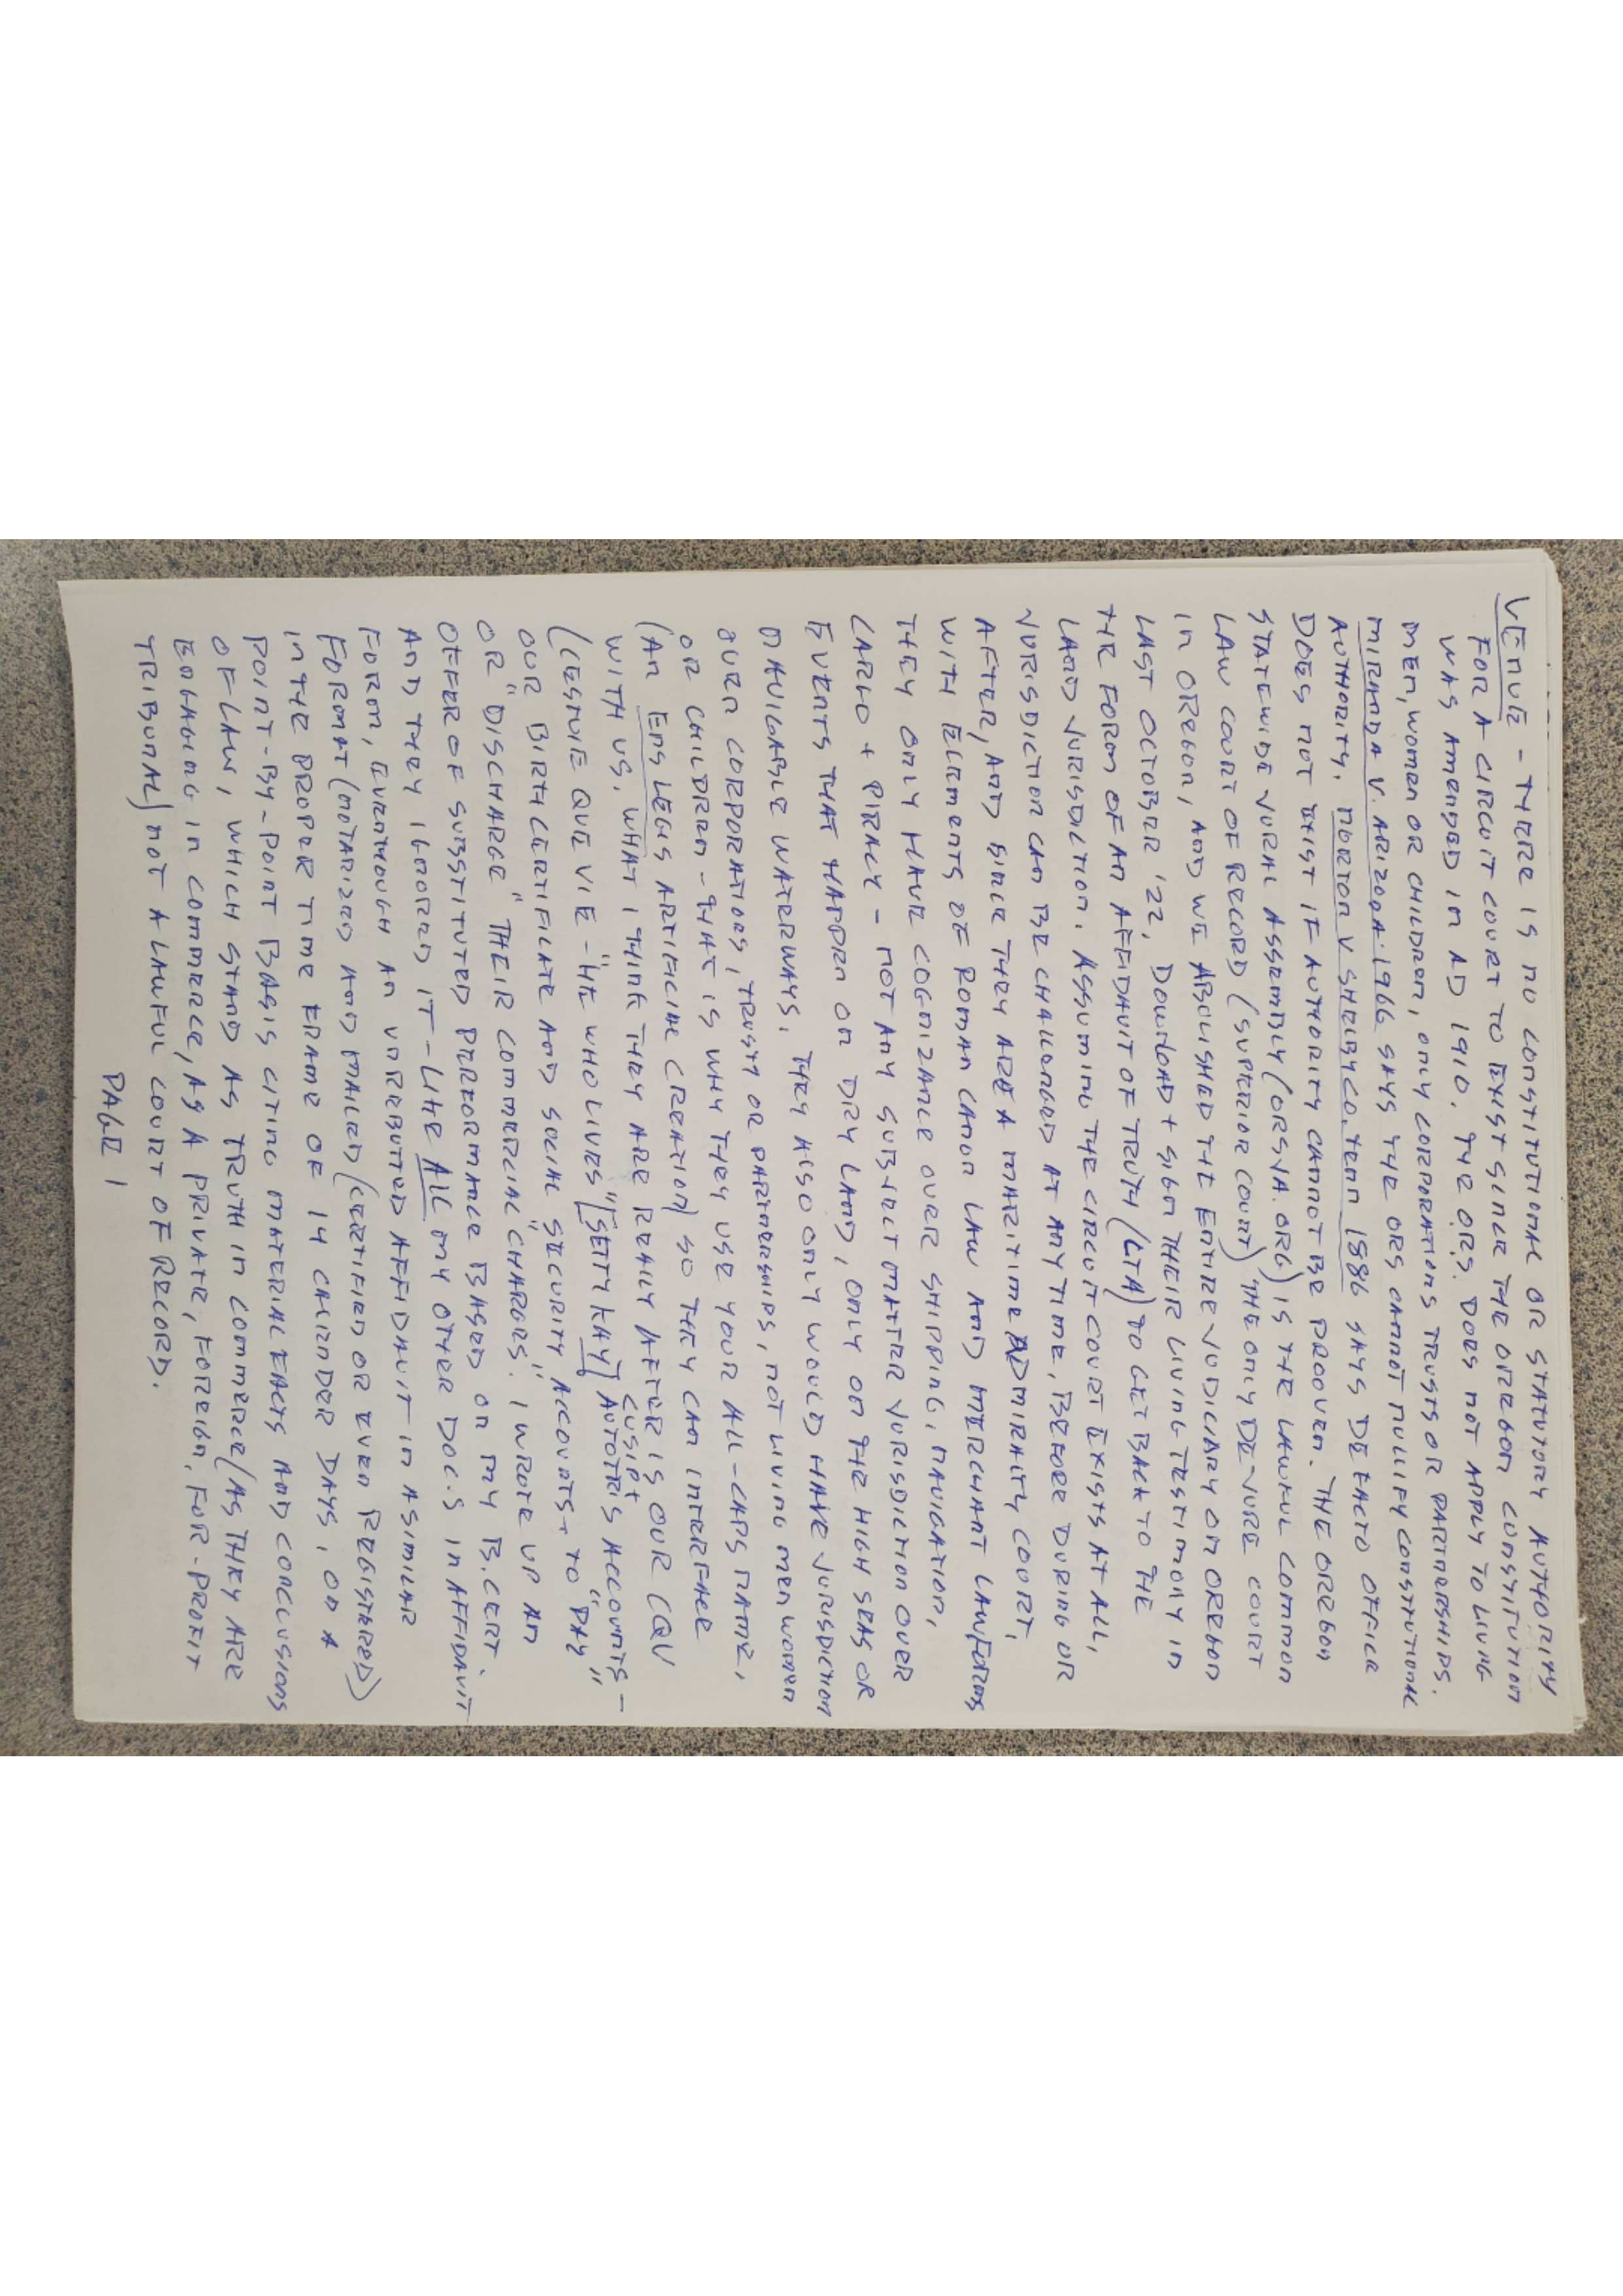 VENUE - THERE IS NO CONSTITUTIONAL OR STATUTORY AUTHORITY
FOR A CIRCUIT COURT TO EXIST SINCE THE OREGON CONSTITUTION
WAS AMENDED IN AD 1910. THE ORS. DOES NOT APPLY TO LIVING
MEN, WOMEN OR CHILDREN, ONLY CORPORATIONS TRUSTS OR PARTNERSHIPS.
MIRANDA V. ARIZONA. 1966 SAYS THE ORS CANNOT NULLIFY CONSTITUTIONAL
AUTHORITY. NORTON V. SHELBY CO. TENN 1886 SAYS DE FACTO OFFICE
DOES NOT EXIST IF AUTHORITY CANNOT BE PROOVEN. THE OREGON
STATEWIDE JURAL ASSEMBLY (ORSJA.ORG) IS THE LAWFUL COMMON
LAW COURT OF RECORD (SUPERIOR COURT) THE ONLY DE JURE COURT
IN OREGON, AND WE ABOLISHED THE ENTIRE JUDICIARY ON OREGON
LAST OCTOBER '22, DOWNOAD + SIGN THEIR LIVING TESTIMONY IN
THE FORM OF AN AFFIDAVIT OF TRUTH (LTA) TO GET BACK TO THE
LAND JURISDICTION. ASSUMING THE CIRCUIT COURT EXISTS AT ALL,
JURISDICTION CAN BE CHALLENGED AT ANY TIME, BEFORE DURING OR
AFTER, AND SINCE THEY ARE A MARITIME ADMIRALTY COURT,
WITH ELEMENTS OF ROMAN CANON LAW AND MERCHANT LAW/FORMS
THEY ONLY HAVE COGNIZANCE OVER SHIPPING, NAVIGATION,
CARGO + PIRACY - NOT ANY SUBJECT MATTER JURISDICTION OVER
EVENTS THAT HAPPEN ON DRY LAND, ONLY ON THE HIGH SEAS OR
NAVIGABLE WATERWAYS. THEY ALSO ONLY WOULD HAVE JURISDICTION
OVER CORPORATIONS, TRUSTS OR PARTNERSHIPS, NOT LIVING MEN WOMEN
OR CHILDREN - THAT IS WHY THEY USE YOUR ALL-CAPS NAME,
(AN ENS LEGIS ARTIFICIAL CREATION) SO THEY CAN INTERFACE
WITH US, WHAT I THINK THEY ARE REALLY AFTER IS OUR CQV
(CESTUE QUE VIE - "HE WHO LIVES" [SETTY KAY] CUSIP + AUTOTRIS ACCOUNTS -
OUR BIRTH CERTIFICATE AND SOCIAL "SECURITY" ACCOUNTS + TO "PAY"
OR "DISCHARGE" THEIR COMMERCIAL "CHARGES". I WROTE UP AN
OFFER OF SUBSTITUTED PERFORMANCE BASED ON MY B.CERT.
AND THEY IGNORED IT - LIKE ALL MY OTHER DOC.S IN AFFIDAVIT
FORM, EVENTHOUGH AN UNREBUTTED AFFIDAVIT - IN A SIMILAR
FORMAT (NOTARIZED AND MAILED) (CERTIFIED OR EVEN REGISTERED)
IN THE PROPER TIME FRAME OF 14 CALENDER DAYS, ON A
POINT-BY-POINT BASIS CITING MATERIAL FACTS AND CONCLUSIONS
OF LAW, WHICH STAND AS TRUTH IN COMMERCE (AS THEY ARE
ENGAGING IN COMMERCE, AS A PRIVATE, FOREIGN, FOR-PROFIT
TRIBUNAL) NOT A LAWFUL COURT OF RECORD.
PAGE 1